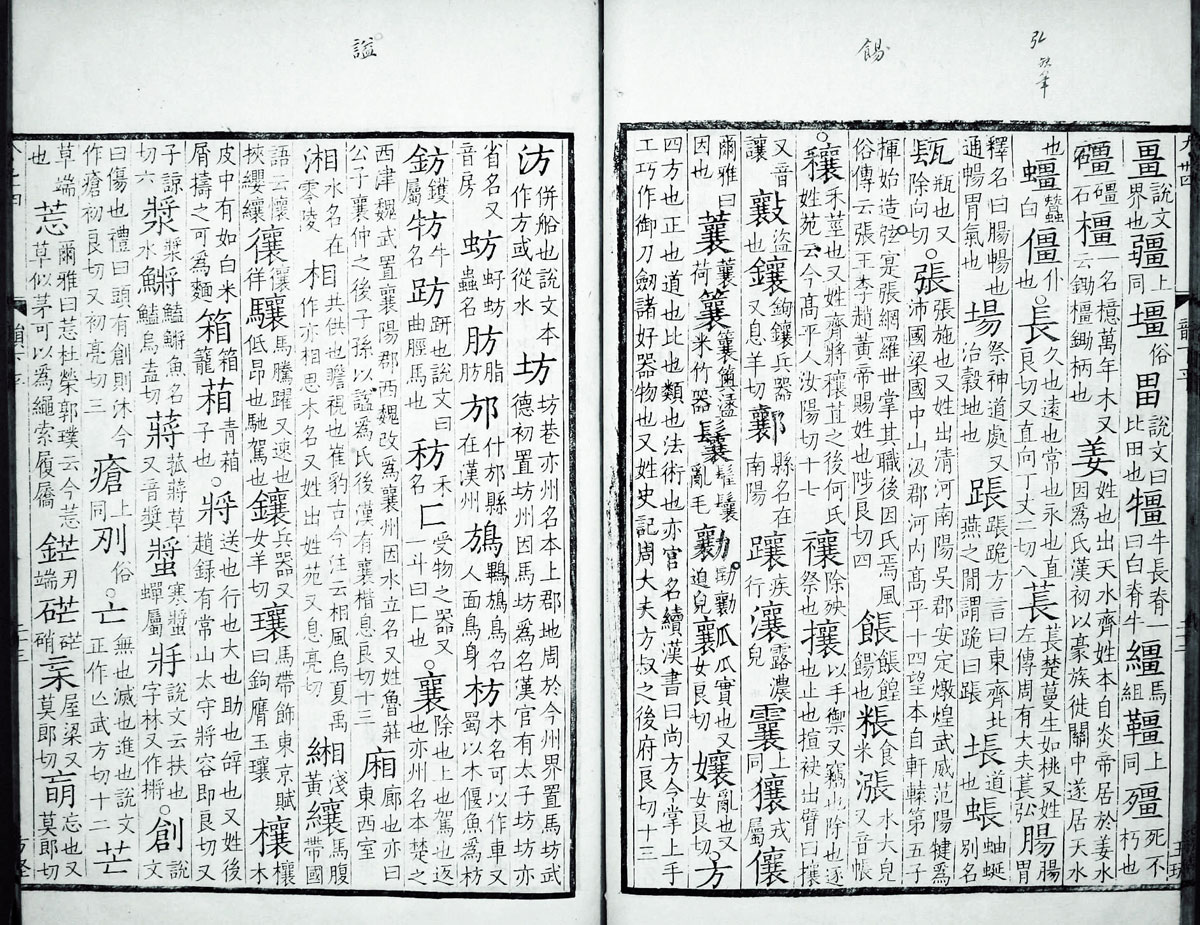 弘 敬筆
餳
畺說文界也疆上同壃俗畕說文曰比田也犟牛長脊一曰白脊牛繮馬組韁上同殭死不朽也
礓礓石橿一名檍萬年木又云鋤橿鋤柄也姜又姓也出天水齊姓本自炎帝居於姜水因爲氏漢初以豪族徙關中遂居天水
也蠸蠶白僵仆也○長久也遠也常也永也直良切又直向丁丈二切八萇萇楚蔓生如桃又姓左傳周有大夫萇弘腸腸胃
釋名曰腸暢也通暢胃氣也場祭神道處又治穀地也䠆䠆跪方言曰東齊北燕之間謂跪曰䠆𡊄道也蜋蚰蜒別名
瓺瓶也又除向切○張張施也又姓出清河南陽吳郡安定燉煌武威范陽犍爲沛國梁國中山汲郡河內高平十四望本自軒轅第五子
揮始造弦寔張網羅世掌其職後因氏焉風俗傳云張王李趙黃帝賜姓也陟良切四餦餦餭餳也粻食米漲水大皃又音帳
○穰禾莖也又姓齊將穰苴之後何氏姓苑云今高平人汝陽切十七禳除殃祭也攘以手御又竊也除也逐也止也揎袂出臂曰攘
又音讓 盜也鑲鉤鑲兵器又息羊切鄴縣名在南陽躟疾行瀼露濃皃䨲上同獽戎屬儴
爾雅曰因也蘘蘘荷 米竹器鬤髼鬤亂毛勷劻勷迫皃瓤瓜實也又女良切孃亂也又女良切○方
四方也正也道也比也類也法術也亦官名續漢書曰尚方令掌上手工巧作御刀劒諸好器物也又姓史記周大夫方叔之後府良切十三
謚
汸併船也說文本作方或從水坊坊巷亦州名本上郡地周於今州界置馬坊武德初置坊州因馬坊爲名漢官有太子坊坊亦
省名又音房蚄虸蚄蟲名肪脂肪邡什邡縣在漢州鴋鶭鴋鳥名人面鳥身枋木名可以作車又蜀以木偃魚爲枋
鈁鑊屬牥牛名趽趼也說文曰曲脛馬也䄱禾名匚受物之器又一斗曰匚也○襄除也上也駕也返也亦州名本楚之
西津魏武置襄陽郡西魏改爲襄州因水立名又姓魯莊公子襄仲之後子孫以謚爲氏後漢有襄楷息良切十三廂廊也亦曰東西室
湘水名在零陵相共供也瞻視也崔豹古今注云相風烏夏禹作亦相思木名又姓出姓苑又息亮切緗淺黃纕馬腹帶國
語云懷挾纓纕忀忀徉驤馬騰躍又速也低昂也馳駕也鑲兵器又女羊切瓖馬帶飾東京賦曰鉤膺玉瓖欀木
皮中有如白米屑擣之可爲麵箱箱籠葙青葙子也○將送也行也大也助也辝也又姓後趙錄有常山太守將容即良切又
子諒切六漿漿水䲔鱃䲔魚名鱃烏盍切蔣菰蔣草又音獎螿寒螿蟬屬𢪇說文云扶也字林又作摪○創說文
曰傷也禮曰頭有創則沐今作瘡初良切又初亮切三瘡上同刅俗○亡無也滅也進也說文正作亾武方切十二芒
草端也莣爾雅曰莣杜榮郭璞云今莣草似茅可以爲繩索履屩鋩刃端硭硭硝杗屋梁又莫郎切 忘也又莫郎切